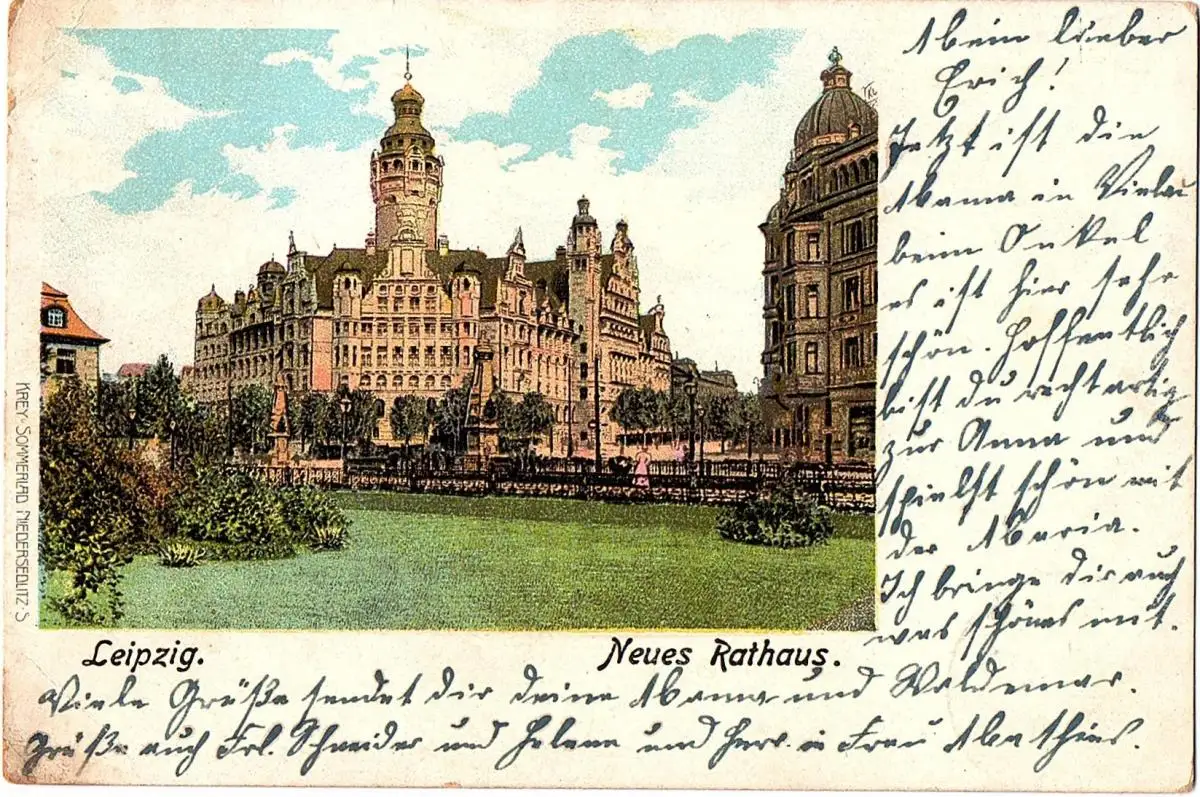 Mein lieber
Erich!
Jetzt ist die
Mama in
beim Onkel
es ist hier sehr
schön. Hoffentlich
bist du recht artig
zur Anna und
spielst schön mit
der Maria.
Ich bringe dir auch
was schönes mit.
KREY-SOMMERLAD NIEDERSEDLITZ-S
Leipzig.
Neues Rathaus.
Viele Grüße sendet dir deine Mama und Waldemar.
Grüße auch Frl. Schneider und Helene und Herr. u Frau Mathies.